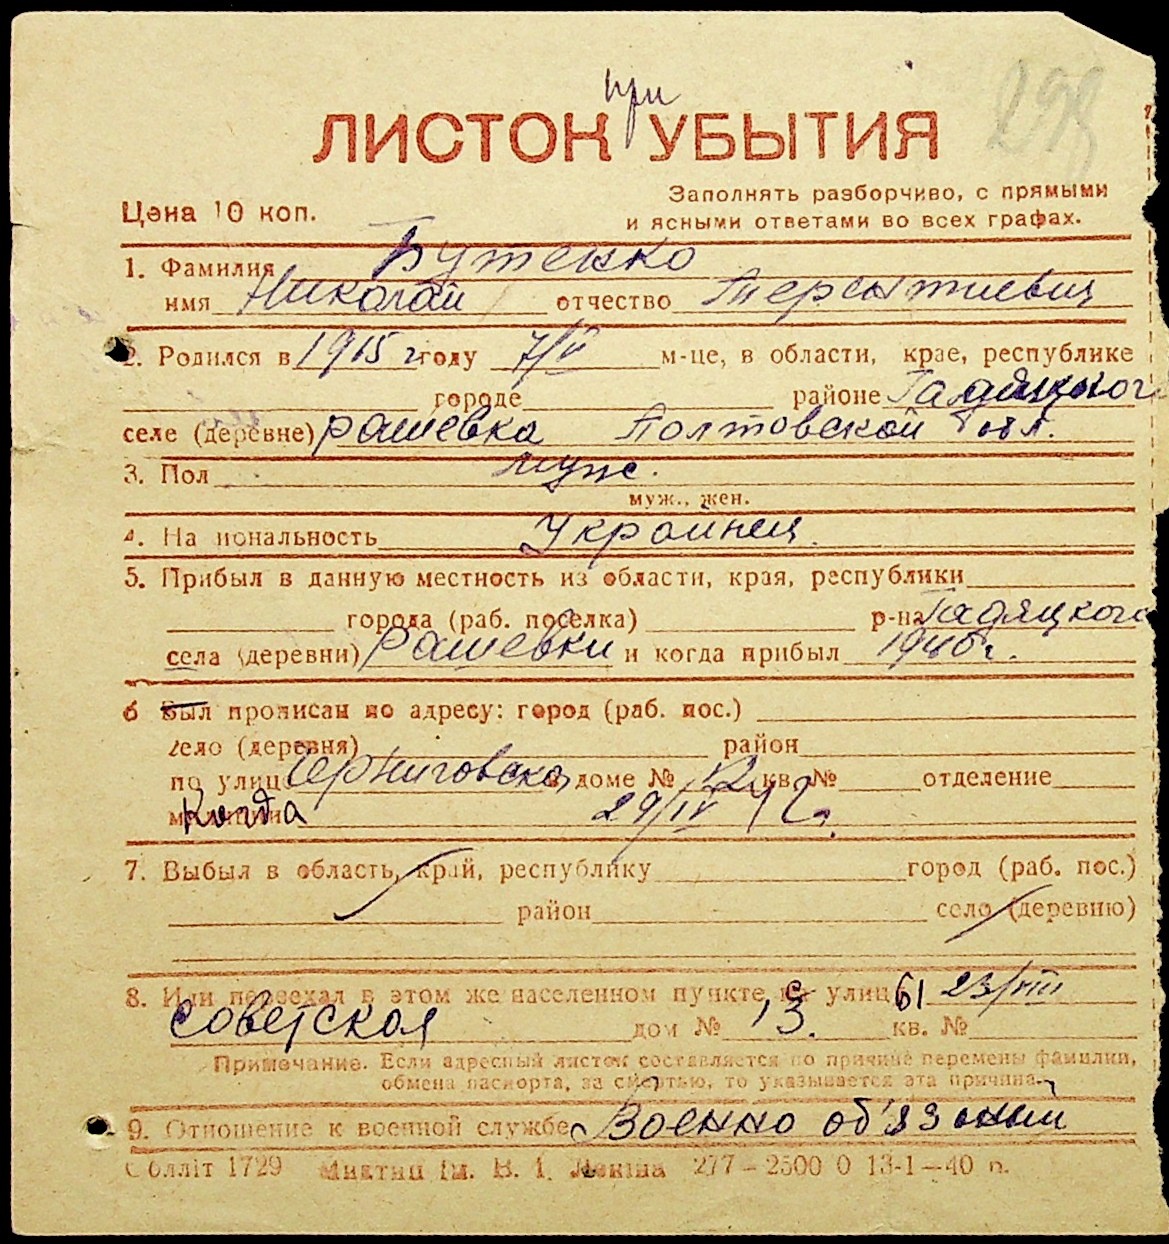 298
при
ЛИСТОК УБЫТИЯ
Цена 10 коп.
Заполнять разборчиво, с прямыми
и ясными ответами во всех графах.
1. Фамилия Бутенко
имя Николай отчество Терентиевич
2. Родился в 1915 г году 7/IV м-це, в области, крае, республике
городе районе Гадяцкого
селе (деревне) Рашевка Полтовской обл.
3. Пол муж.
муж., жен.
4. На иональность Украинец.
5. Прибыл в данную местность из области, края, республики
города (раб. поселка) р-на Гадяцкого
села (деревни) Рашевки и когда прибыл 1940 г.
6 Был прописан по адресу: город (раб. пос.)
село (деревня) район
по улице Черниговска доме № 12 кв. № отделение
Когда 29/IV 42 г.
7. Выбыл в область, край, республику город (раб. пос.)
район село (деревню)
8. Или переехал в этом же населенном пункте с улицы 23/VIII
Советская дом № 13. кв. №
Примечание. Если адресный листок составляется по причине перемены фамилии,
обмена паспорта, за смертью, то указывается эта причина.
9. Отношение к военной службе Военно об'язаный
Обллiт 1729 Миктип iм. В. I. Ленiна 277–2500 0 13-1–40 п.